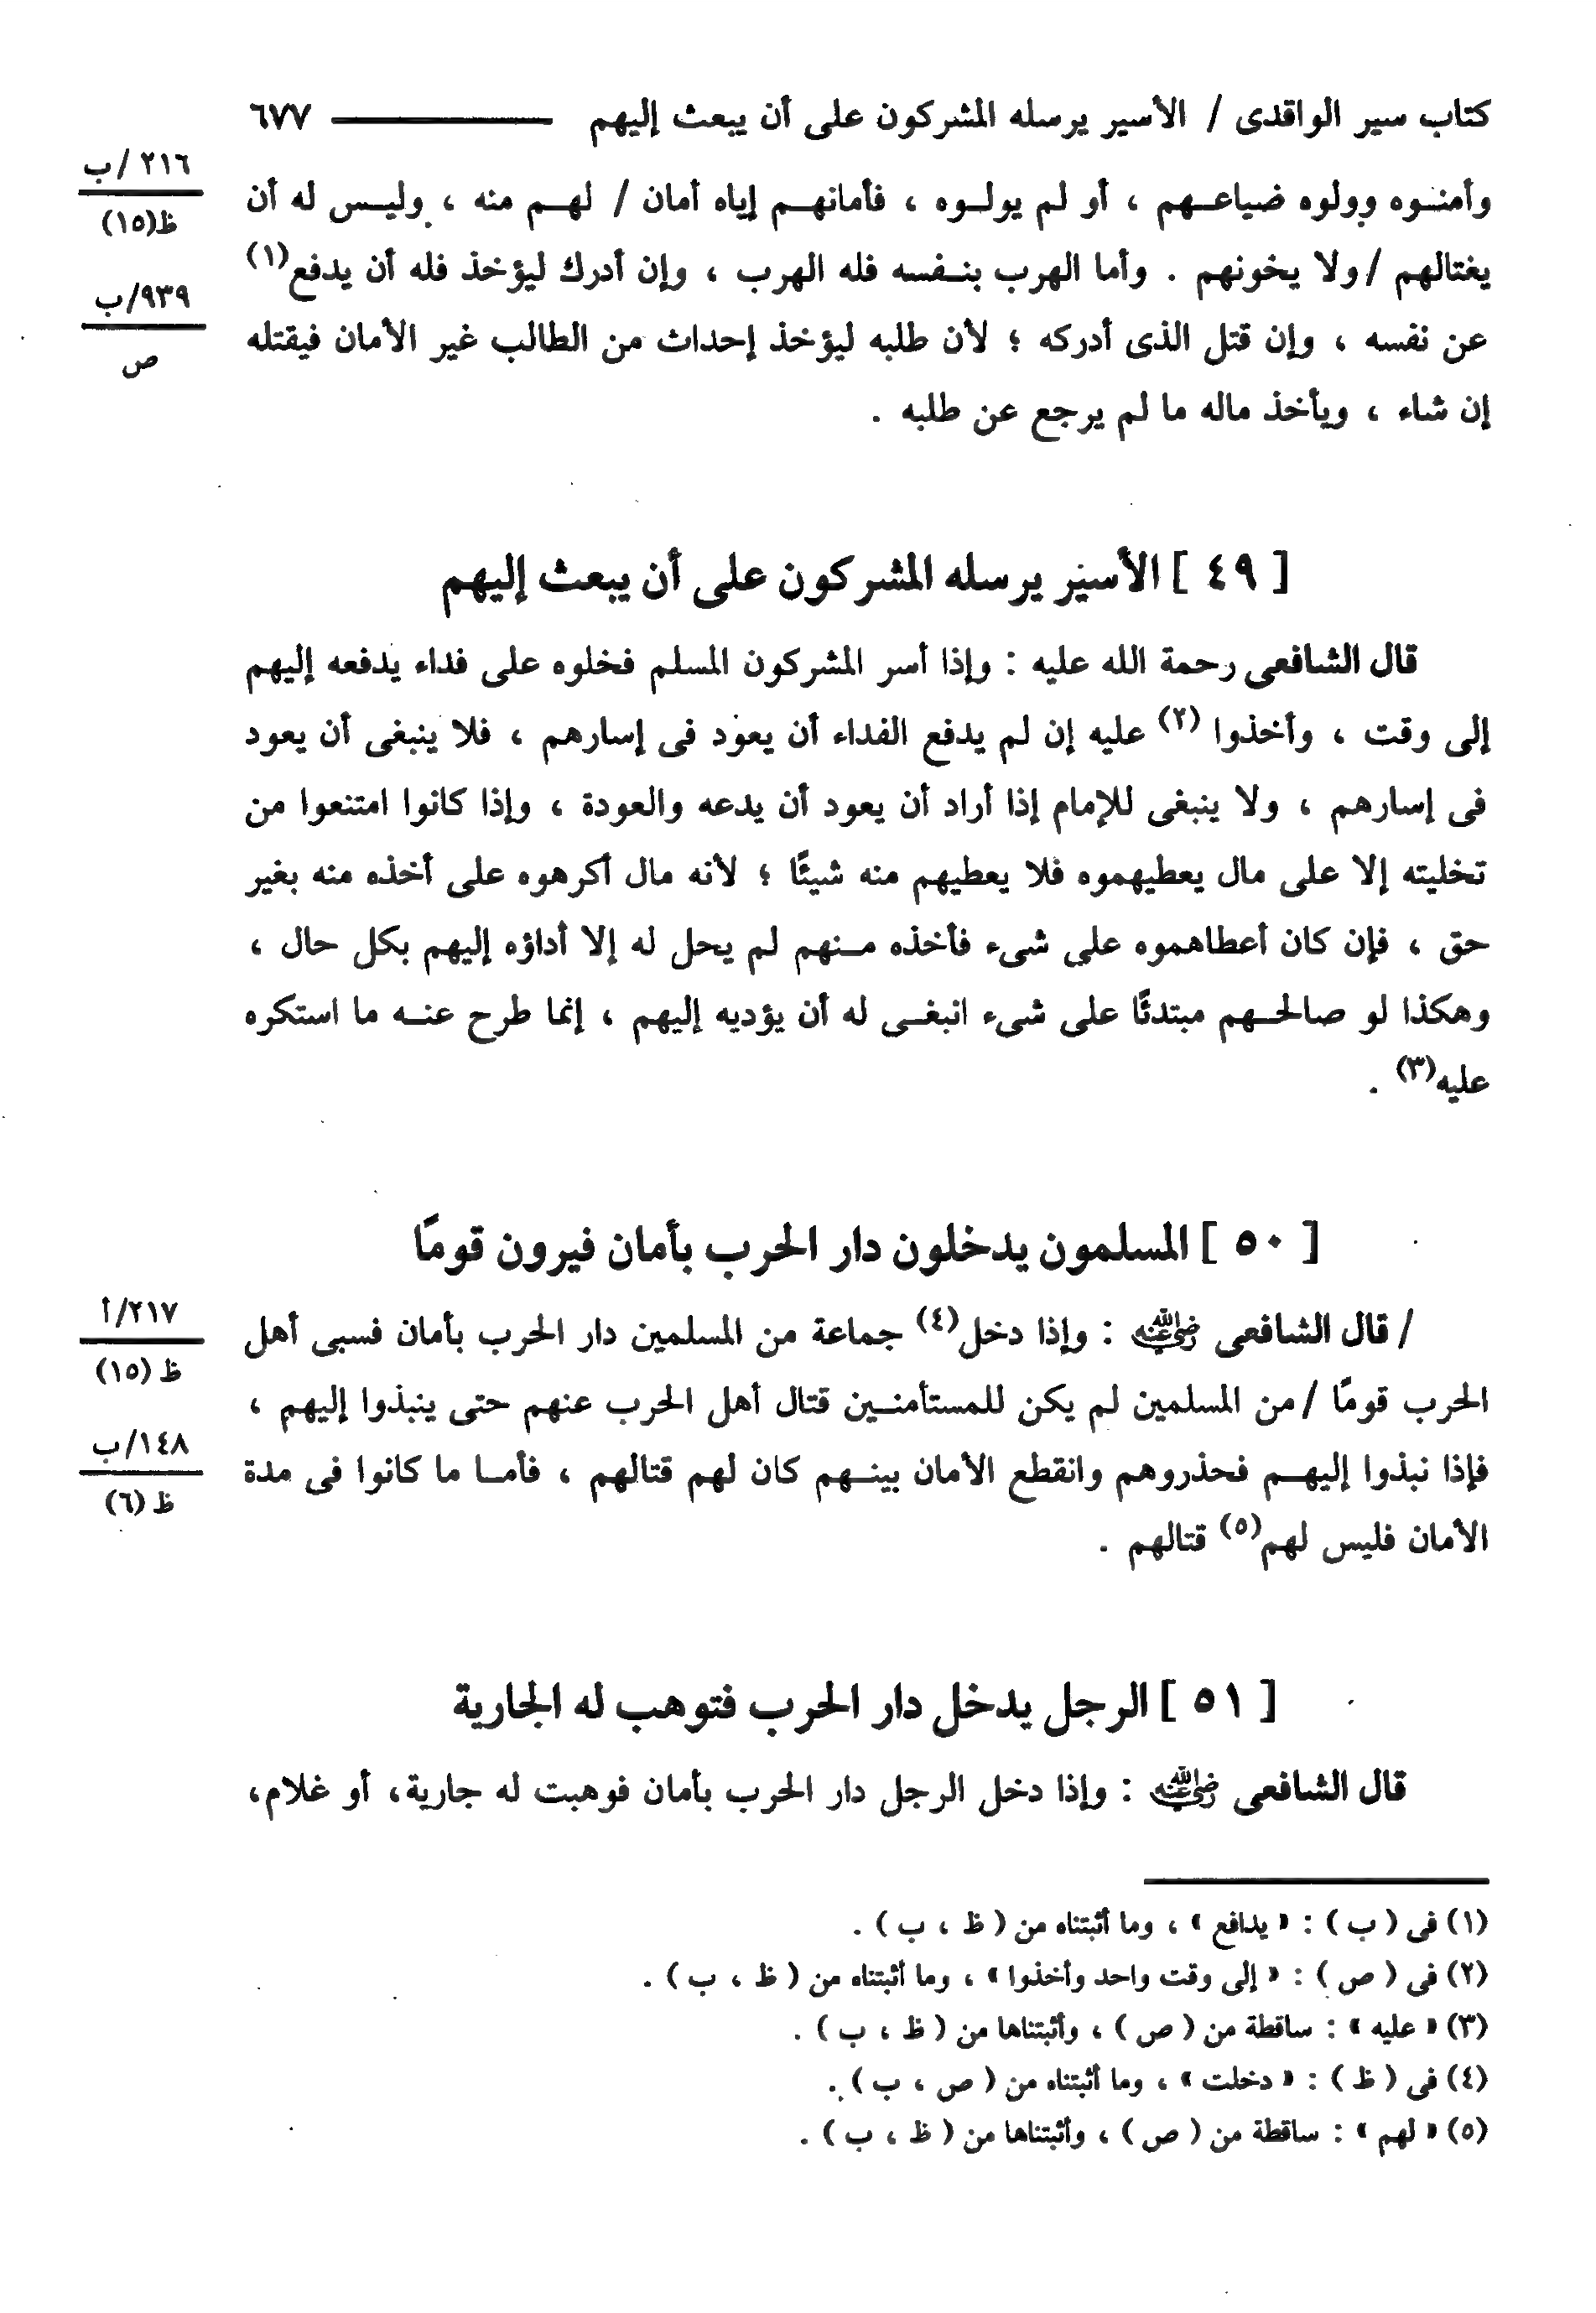 كتاب سير الواقدى / الأسير يرسله المشركون على أن يبعث إليهم ــــــــ ٦٧٧
٢١٦ /ب
ظ(١٥)
وأمنـوه وولوه ضياعـهم ، أو لم يولـوه ، فأمانهـم إياه أمان / لهـم منه ، وليـس له أن
٩٣٩/ب
ص
يغتالهم /ولا يخونهم . وأما الهرب بنـفسه فله الهرب ، وإن أدرك ليؤخذ فله أن يدفع(١)
عن نفسه ، وإن قتل الذى أدركه ؛ لأن طلبه ليؤخذ إحداث من الطالب غير الأمان فيقتله
إن شاء ، ويأخذ ماله ما لم يرجع عن طلبه .
[ ٤٩ ] الأسير يرسله المشركون على أن يبعث إليهم
قال الشافعى رحمة الله عليه : وإذا أسر المشركون المسلم فخلوه على فداء يدفعه إليهم
إلى وقت ، وأخذوا (٢) عليه إن لم يدفع الفداء أن يعود فى إسارهم ، فلا ينبغى أن يعود
فى إسارهم ، ولا ينبغى للإمام إذا أراد أن يعود أن يدعه والعودة ، وإذا كانوا امتنعوا من
تخليته إلا على مال يعطيهموه فلا يعطيهم منه شيئًا ؛ لأنه مال أكرهوه على أخذه منه بغير
حق ، فإن كان أعطاهموه على شىء فأخذه مـنهم لم يحل له إلا أداؤه إليهم بكل حال ،
وهكذا لو صالحـهم مبتدئًا على شىء انبغـى له أن يؤديه إليهم ، إنما طرح عنـه ما استكره
عليه(٣) .
[ ٥٠ ] المسلمون يدخلون دار الحرب بأمان فيرون قومًا
٢١٧/أ
ظ (١٥)
/ قال الشافعى رضي الله عنه : وإذا دخل(٤) جماعة من المسلمين دار الحرب بأمان فسبى أهل
الحرب قومًا /من المسلمين لم يكن للمستأمنـين قتال أهل الحرب عنهم حتى ينبذوا إليهم ،
١٤٨/ب
ظ (٦)
فإذا نبذوا إليهـم فحذروهم وانقطع الأمان بينـهم كان لهم قتالهم ، فأمـا ما كانوا فى مدة
الأمان فليس لهم(٥) قتالهم .
[ ٥١ ] الرجل يدخل دار الحرب فتوهب له الجارية
قال الشافعى رضي الله عنه : وإذا دخل الرجل دار الحرب بأمان فوهبت له جارية، أو غلام،
(١) فى ( ب ) : « يدافع » ، وما أثبتناه من ( ظ ، ب ) .
(٢) فى ( ص ) : « إلى وقت واحد وأخذوا » ، وما أثبتناه من ( ظ ، ب ) .
(٣) « عليه » : ساقطة من ( ص ) ، وأثبتناها من ( ظ ، ب ) .
(٤) فى ( ظ ) : « دخلت » ، وما أثبتناه من ( ص ، ب ) .
(٥) « لهم » : ساقطة من ( ص ) ، وأثبتناها من ( ظ ، ب ) .